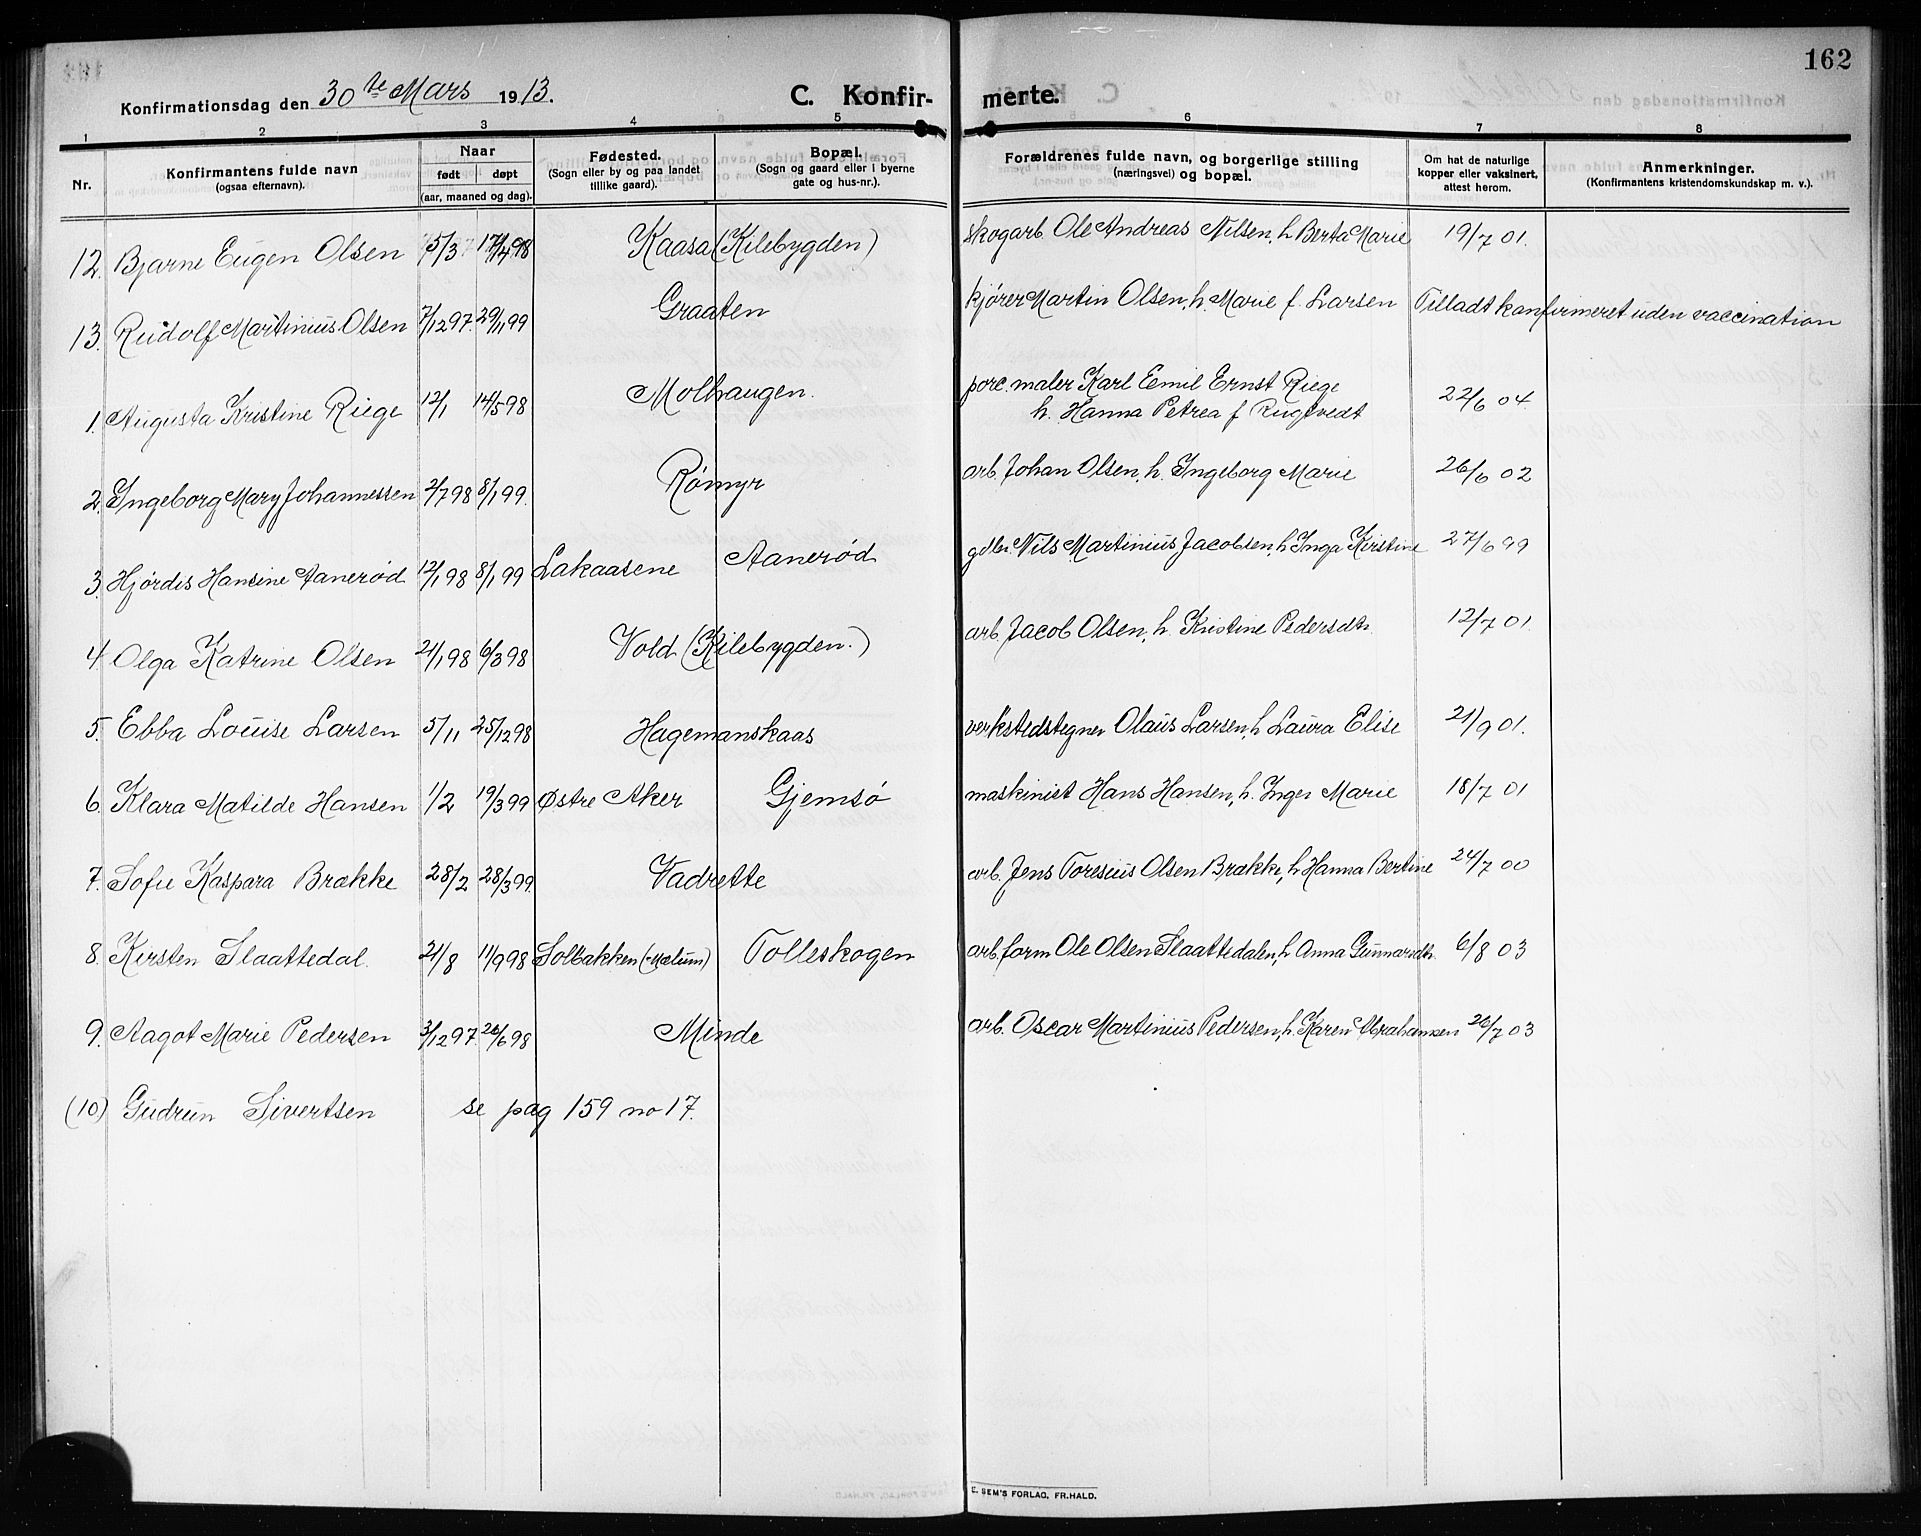 162
Konfirmationsdag den 30te Mars 1913. C. Konfirmerte.
1 2 3 4 5 6 7 8
Nr. Konfirmantens fulde navn (ogsaa efternavn). Naar født døpt (aar, maaned og dag). Fødested. (Sogn eller by og paa landet tillike gaard). Bopæl. (Sogn og gaard eller i byerne gate og hus-nr.). Forældrenes fulde navn, og borgerlige stilling (næringsvei) og bopæl. Om hat de naturlige kopper eller vaksinert, attest herom. Anmerkninger. (Konfirmantens kristendomskundskap m. v.).
12. Bjarne Eugen Olsen 5/3 17/4 98 Kaasa (Kilebygden) skogarb. Ole Andreas Nilsen, h Berta Marie 19/7 01.
13. Rudolf Martinius Olsen 7/12 97 29/1 99 Graaten kjører Martin Olsen, h. Marie f. Larsen Tilladt konfirmeret uden vaccination
1. Augusta Kristine Riege 12/1 14/5 98 Molhaugen. porc. maler Karl Eemil Ernst Riege
h. Hanna Petrea f Rugtvedt 22/6 04.
2. Ingeborg Mary Johannessen 2/7 98 8/1 99. Rømyr arb. Johan Olsen, h. Ingeborg Marie 26/6 02
3. Hjørdis Hansine Aanerød 12/1 98 8/1 99 Lakaasene Aanerød gdbr. Nils Martinius Jacobsen, h Inga Kirstine 27/6 99
4. Olga Katrine Olsen 21/1 98 6/3 98 Vold (Kilebygden.) arb. Jacob Olsen, h. Kristine Pedersdtr. 12/7 01.
5. Ebba Louise Larsen 5/11 25/12 98 Hagemanskaas verkstedstegner Olaus Larsen, h Laura Elise 21/9 01.
6. Klara Matilde Hansen 1/2 19/3 99 Østre Aker Gjemsø maskinist Hans Hansen, h. Inger Marie 18/7 01
7. Sofie Kaspara Brække 28/2 28/3 99. Vadrette arb. Jens Toresius Olsen Brække, h Hanna Bertine 24/7 00
8. Kirsten Slaattedal. 21/8 11/9 98 Solbakken (Mælum) Tolleskogen arb.form Ole Olsen Slaattedalen, h Anna Gunnarsdtr. 6/8 03
9. Aagot Marie Pedersen 3/12 97. 26/6 98 Minde arb. Oscar Martinius Pedersen, h. Karen Abrahamsen 26/7 03
(10) Gudrun Sivertsen se pag 159 no 17.
E. SEM'S FORLAG, FR.HALD.